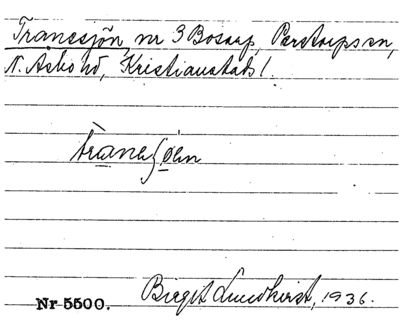 Tranesjön, nr 3 Bosarp, Perstorps sn,
N. Åsbo hd, Kristianstads l.
Nr 5500. Birgit Lundkvist, 1936.